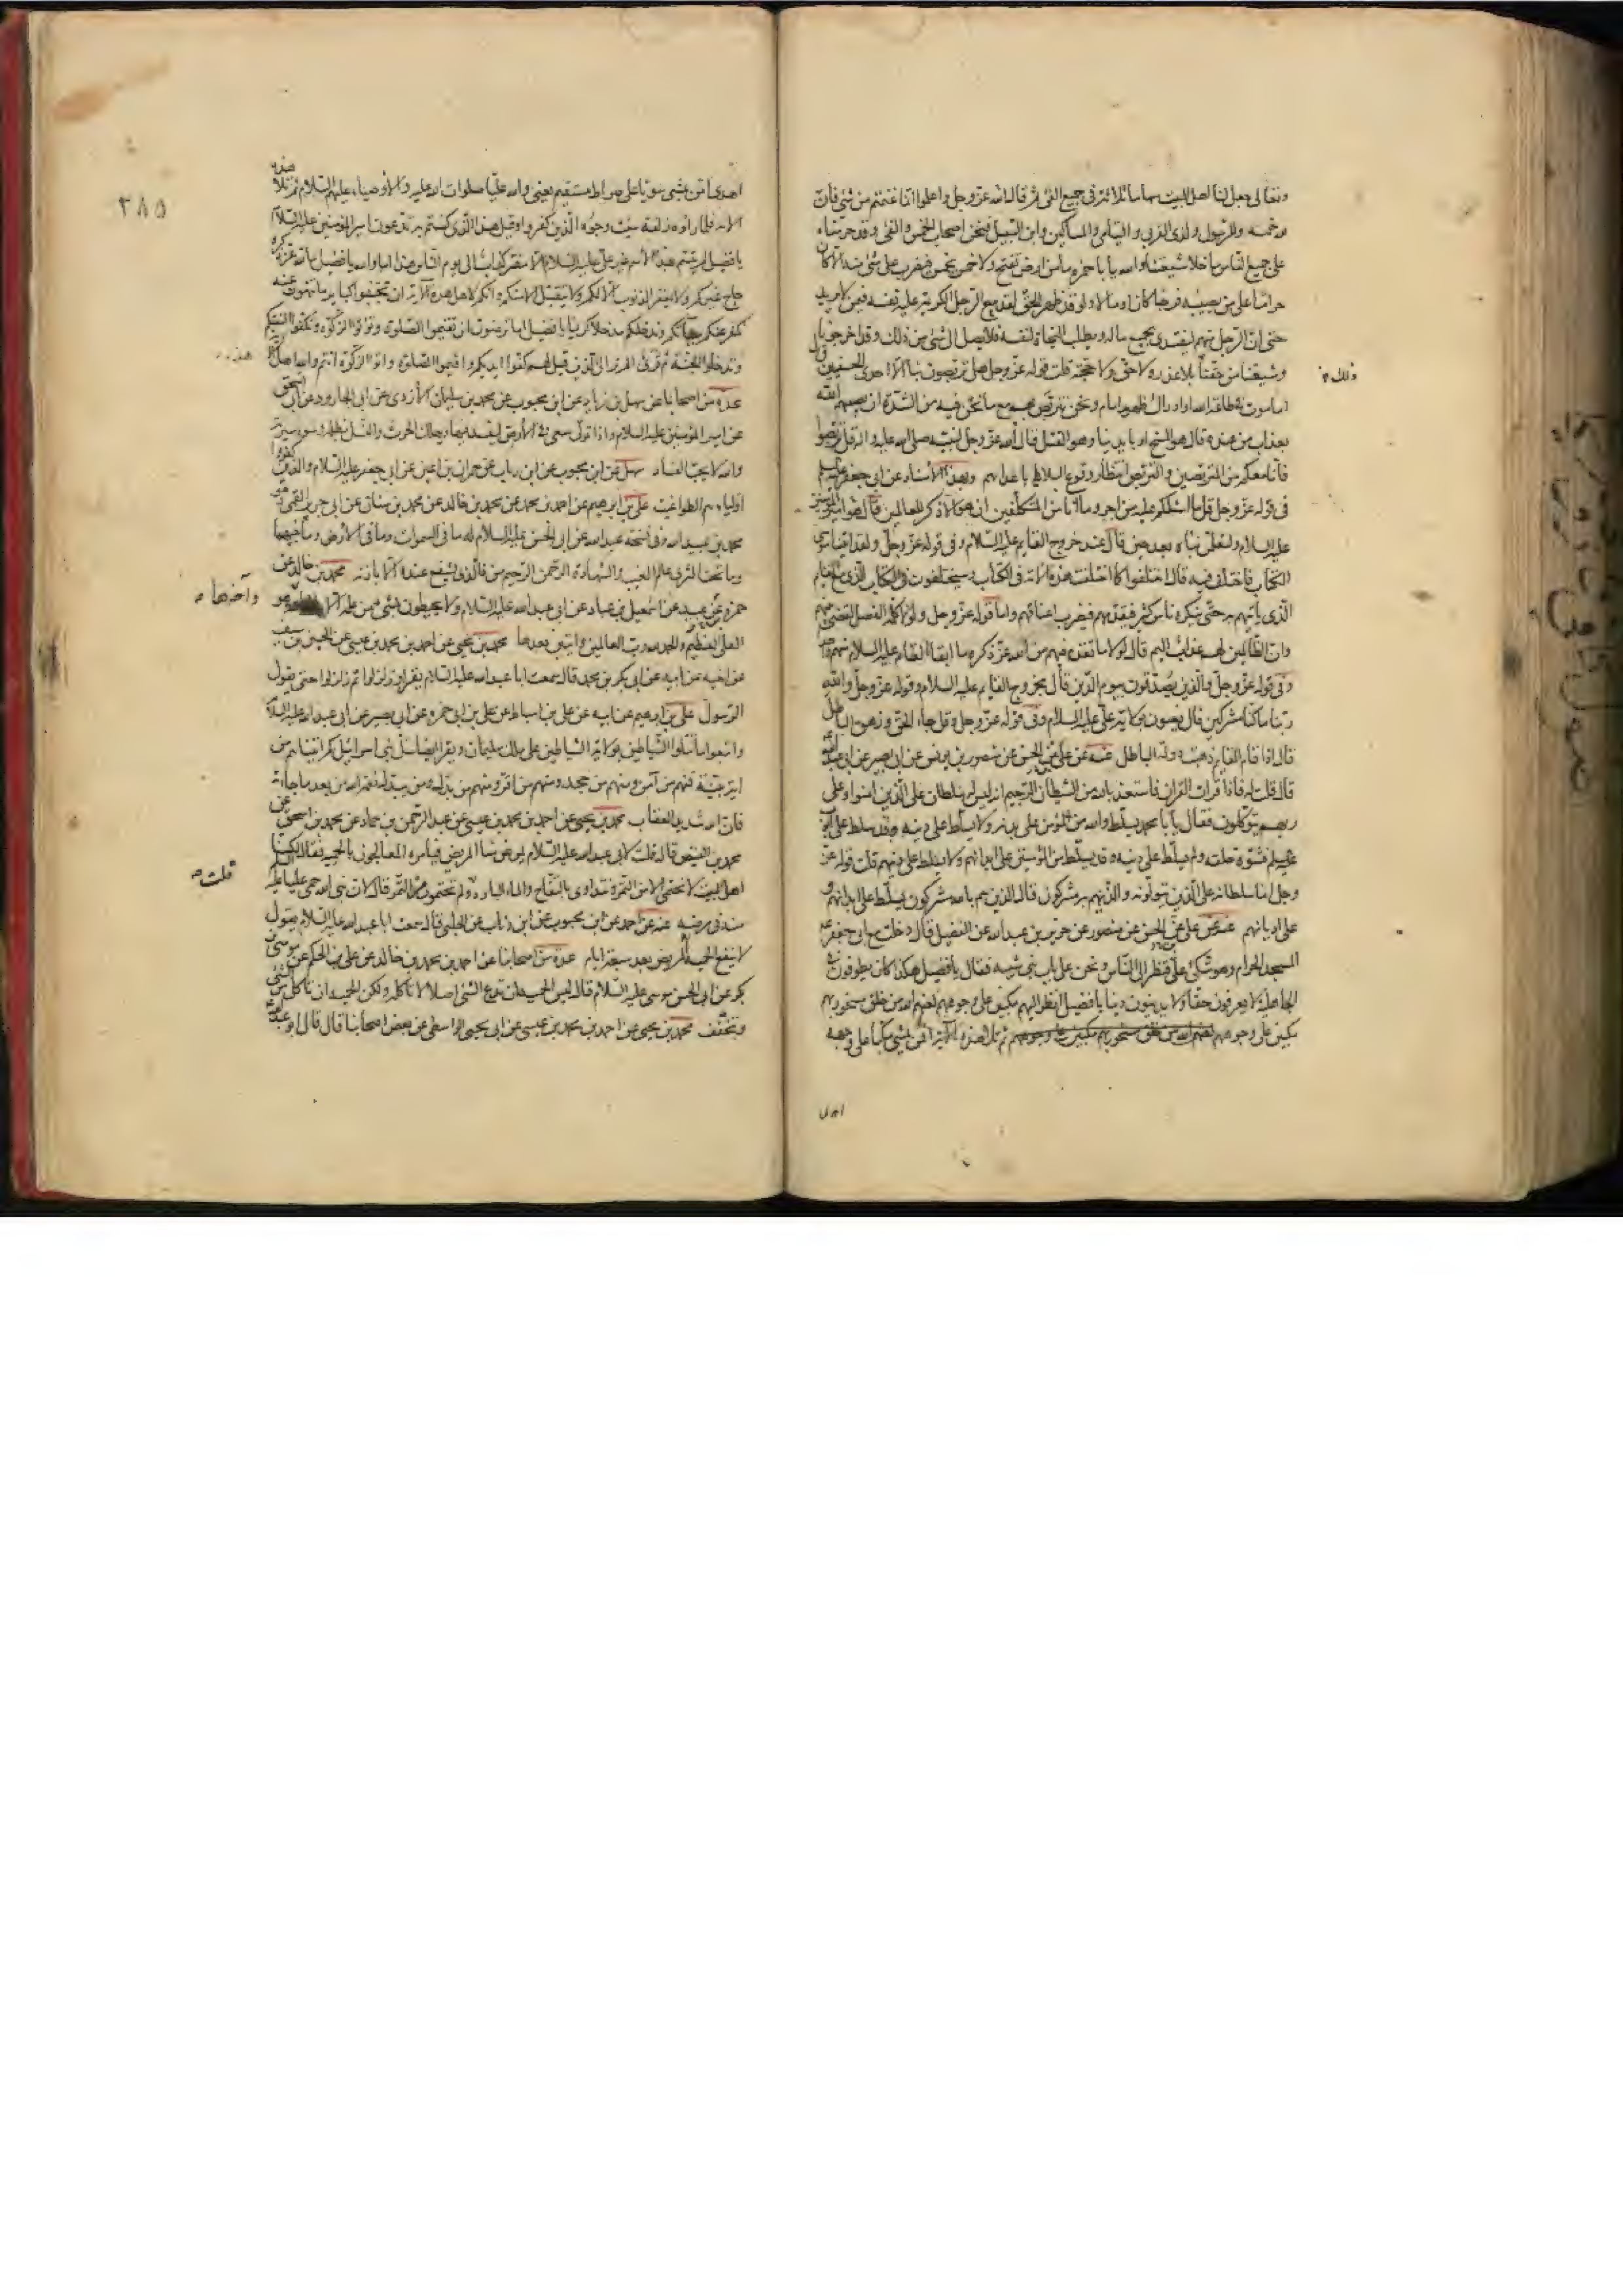 وتعالى جعل لنا اهل البيت سهاما ثلاثة في جميع الفئ ثم قال الله عز وجل واعلموا انما غنمتم من شئ فأن
لله خمسه وللرسول ولذي القربى واليتامى والمساكين وابن السبيل فنحن اصحاب الخمس والفئ وقد حرمناه
على جميع الناس ما خلا شيعتنا والله يا با حمزه ما من ارض تفتح ولا خمس يخمس فيضرب على شئ منه الا كان
حراما على من يصيبه فرجا كان او مالا ولو قد ظهر الحق لقد بيع الرجل الكريم عليه نفسه فيمن لا يريد
حتى ان الرجل منهم ليفتدي بجميع ماله ويطلب النجاة لنفسه فلا يصل الى شئ من ذلك وقد اخرجونا
وشيعتنا من حقنا بلا عذر ولا حق ولا حجة قلت قوله عز وجل هل تربصون بنا الا احدى الحسنيين قال
ذلك
اما موت في طاعة الله او ادراك ظهور امام ونحن نتربص بهم مع ما نحن فيه من الشدة ان يصيبهم الله
بعذاب من عنده قال هو المسخ او بايدينا وهو القتل قال الله عز وجل لنبيه صلى الله عليه واله قل تربصوا
فانا معكم من المتربصين والتربص انتظار وقوع البلاء باعدائهم وبهذا الاسناد عن ابي جعفر عليه السلم
في قوله عز وجل قل ما اسئلكم عليه من اجر وما انا من المتكلفين ان هو الا ذكر للعالمين قال هو امير المؤمنين
عليه السلام ولتعلمن نباه بعد حين قال عند خروج القايم عليه السلام وفي قوله عز وجل ولقد اتينا موسى
الكتاب فاختلف فيه قال اختلفوا كما اختلفت هذه الامة في الكتاب وسيختلفون في الكتاب الذي مع القايم
الذي ياتيهم به حتى ينكره ناس كثير فيقدمهم فيضرب اعناقهم واما قوله عز وجل ولولا كلمة الفصل لقضي بينهم
وان الظالمين لهم عذاب اليم قال لولا ما تقدم فيهم من الله عز ذكره ما ابقى القايم عليه السلام منهم واحدا
وفي قوله عز وجل والذين يصدقون بيوم الدين قال بخروج القايم عليه السلام وقوله عز وجل والله
ربنا ما كنا مشركين قال يعنون بولاية علي عليه السلام وفي قوله عز وجل وقل جاء الحق وزهق الباطل
قال اذا قام القايم ذهبت دولة الباطل عنه عن علي بن الحسن عن منصور بن يونس عن ابي بصير عن ابي عبد الله
قال قلت له فاذا قرات القران فاستعذ بالله من الشيطان الرجيم انه ليس له سلطان على الذين امنوا وعلى
ربهم يتوكلون فقال يا با محمد يسلط والله من المؤمن على بدنه ولا يسلط على دينه وقد سلط على ايوب
عليه السلم فشوه خلقه ولم يسلط على دينه وقد يسلط من المؤمنين على ابدانهم ولا يسلط على دينهم قلت قوله عز
وجل انما سلطانه على الذين يتولونه والذين هم به مشركون قال الذين هم بالله مشركون يسلط على ابدانهم و
على اديانهم عنه عن علي بن الحسن عن منصور عن حريز بن عبد الله عن الفضيل قال دخلت مع ابي جعفر ع
المسجد الحرام وهو متكئ علي فنظر الى الناس ونحن على باب بني شيبة فقال يا فضيل هكذا كان يطوفون في
الجاهلية لا يعرفون حقا ولا يدينون دينا يا فضيل انظر اليهم مكبين على وجوههم لعنهم الله من خلق مسخور بهم
مكبين على وجوههم لعنهم الله من خلق مسخور بهم مكبين على وجوههم ثم تلا هذه الآية افمن يمشي مكبا على وجهه
اهدى
٣٨٥
اهدى امن يمشي سويا على صراط مستقيم يعني والله عليا صلوات الله عليه والاوصياء عليهم السلام ثم تلا هذه
الآية فلما راوه زلفة سيئت وجوه الذين كفروا وقيل هذا الذي كنتم به تدعون امير المؤمنين عليه السلام
يا فضيل لم يتسم بهذا الاسم غير علي عليه السلام الا مفتر كذاب الى يوم الناس هذا اما والله يا فضيل ما لله عز ذكره
حاج غيركم ولا يغفر الذنوب الا لكم ولا يتقبل الا منكم وانكم لاهل هذه الآية ان تجتنبوا كباير ما تنهون عنه
نكفر عنكم سيئاتكم وندخلكم مدخلا كريما يا فضيل اما ترضون ان تقيموا الصلوة وتؤتوا الزكوة وتكفوا السنتكم
وتدخلوا الجنة ثم قرئ الم تر الى الذين قيل لهم كفوا ايديكم واقيموا الصلوة واتوا الزكوة انتم والله اهل هذه
عدة من اصحابنا عن سهل بن زياد عن ابن محبوب عن محمد بن سليمان الازدي عن ابي الجارود عن ابي اسحق
عن امير المؤمنين عليه السلام واذا تولى سعى في الارض ليفسد فيها ويهلك الحرث والنسل بظلمه وسوء سيرته
والله لا يحب الفساد سهل عن ابن محبوب عن ابن رياب عن حمران بن اعين عن ابي جعفر عليه السلام والذين كفروا
اولياؤهم الطواغيت علي بن ابرهيم عن احمد بن محمد عن محمد بن خالد عن محمد بن سنان عن ابي جرير القمي وهو
محمد بن عبيد الله وفي نسخة عبد الله عن ابي الحسن عليه السلام له ما في السموات وما في الارض وما بينهما
وما تحت الثرى عالم الغيب والشهادة الرحمن الرحيم من ذا الذي يشفع عنده الا باذنه محمد بن خالد عن
حمزة بن عبيد عن اسمعيل بن عباد عن ابي عبد الله عليه السلام ولا يحيطون بشئ من علمه الا بما شاء وآخرها وهو
العلي العظيم والحمد لله رب العالمين وايتين بعدها محمد بن يحيى عن احمد بن محمد بن عيسى عن الحسين بن سيف
عن اخيه عن ابيه عن ابي بكر بن محمد قال سمعت ابا عبد الله عليه السلام يقرا وزلزلوا ثم زلزلوا حتى يقول
الرسول علي بن ابرهيم عن ابيه عن علي بن اسباط عن علي بن ابي حمزه عن ابي بصير عن ابي عبد الله عليه السلام
واتبعوا ما تتلوا الشياطين بولاية الشياطين على ملك سليمان ويقرا ايضا سل بني اسرائيل كم اتيناهم من
اية بينة فمنهم من آمن ومنهم من جحد ومنهم من اقر ومنهم من بدل ومن يبدل نعمة الله من بعد ما جاءته
فان الله شديد العقاب محمد بن يحيى عن احمد بن محمد بن عيسى عن عبد الرحمن بن حماد عن محمد بن اسحق عن
محمد بن الفيض قال قلت لابي عبد الله عليه السلام يمرض منا المريض فيامره المعالجون بالحمية فقال لكنا
اهل البيت لا نحتمي الا من التمر ونتداوى بالتفاح والماء البارد قلت ولم تحتمون من التمر قال لان نبي الله حمى عليا عليه السلم
منه في مرضه عنه عن احمد عن ابن محبوب عن ابن رئاب عن الحلبي قال سمعت ابا عبد الله عليه السلام يقول
لا ينفع الحمية لمريض بعد سبعة ايام عدة من اصحابنا عن احمد بن محمد بن خالد عن علي بن الحكم عن موسى بن
بكر عن ابي الحسن موسى عليه السلام قال ليس الحمية ان تدع الشئ اصلا لا تاكله ولكن الحمية ان تاكل من الشئ
وتخفف محمد بن يحيى عن احمد بن محمد بن عيسى عن ابي يحيى الواسطي عن بعض اصحابنا قال قال ابو عبد الله